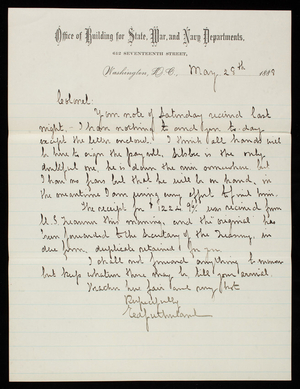 Office of Building for State, War, and Navy Departments,
SEVENTEENTH STREET,
Washington, D.C., May 28th 1883
Colonel:
Your note of Saturday received last
night. - I have nothing to send you to-day
except the letter enclosed. I think all hands will
be here to sign the pay roll. is the only
doubtful one, he is down the river somewhere but
I have no fear but that he will be on hand, in
the meantime I am using every effort to find him.
The receipt for $ was received from
U.S. Treasurer this morning, and the original has
been forwarded to the Secretary of the Treasury, in
due form, duplicate retained for you.
I shall not forward anything to
but keep whatever there may be till your arrival.
Weather here fair and very hot
Respectfully